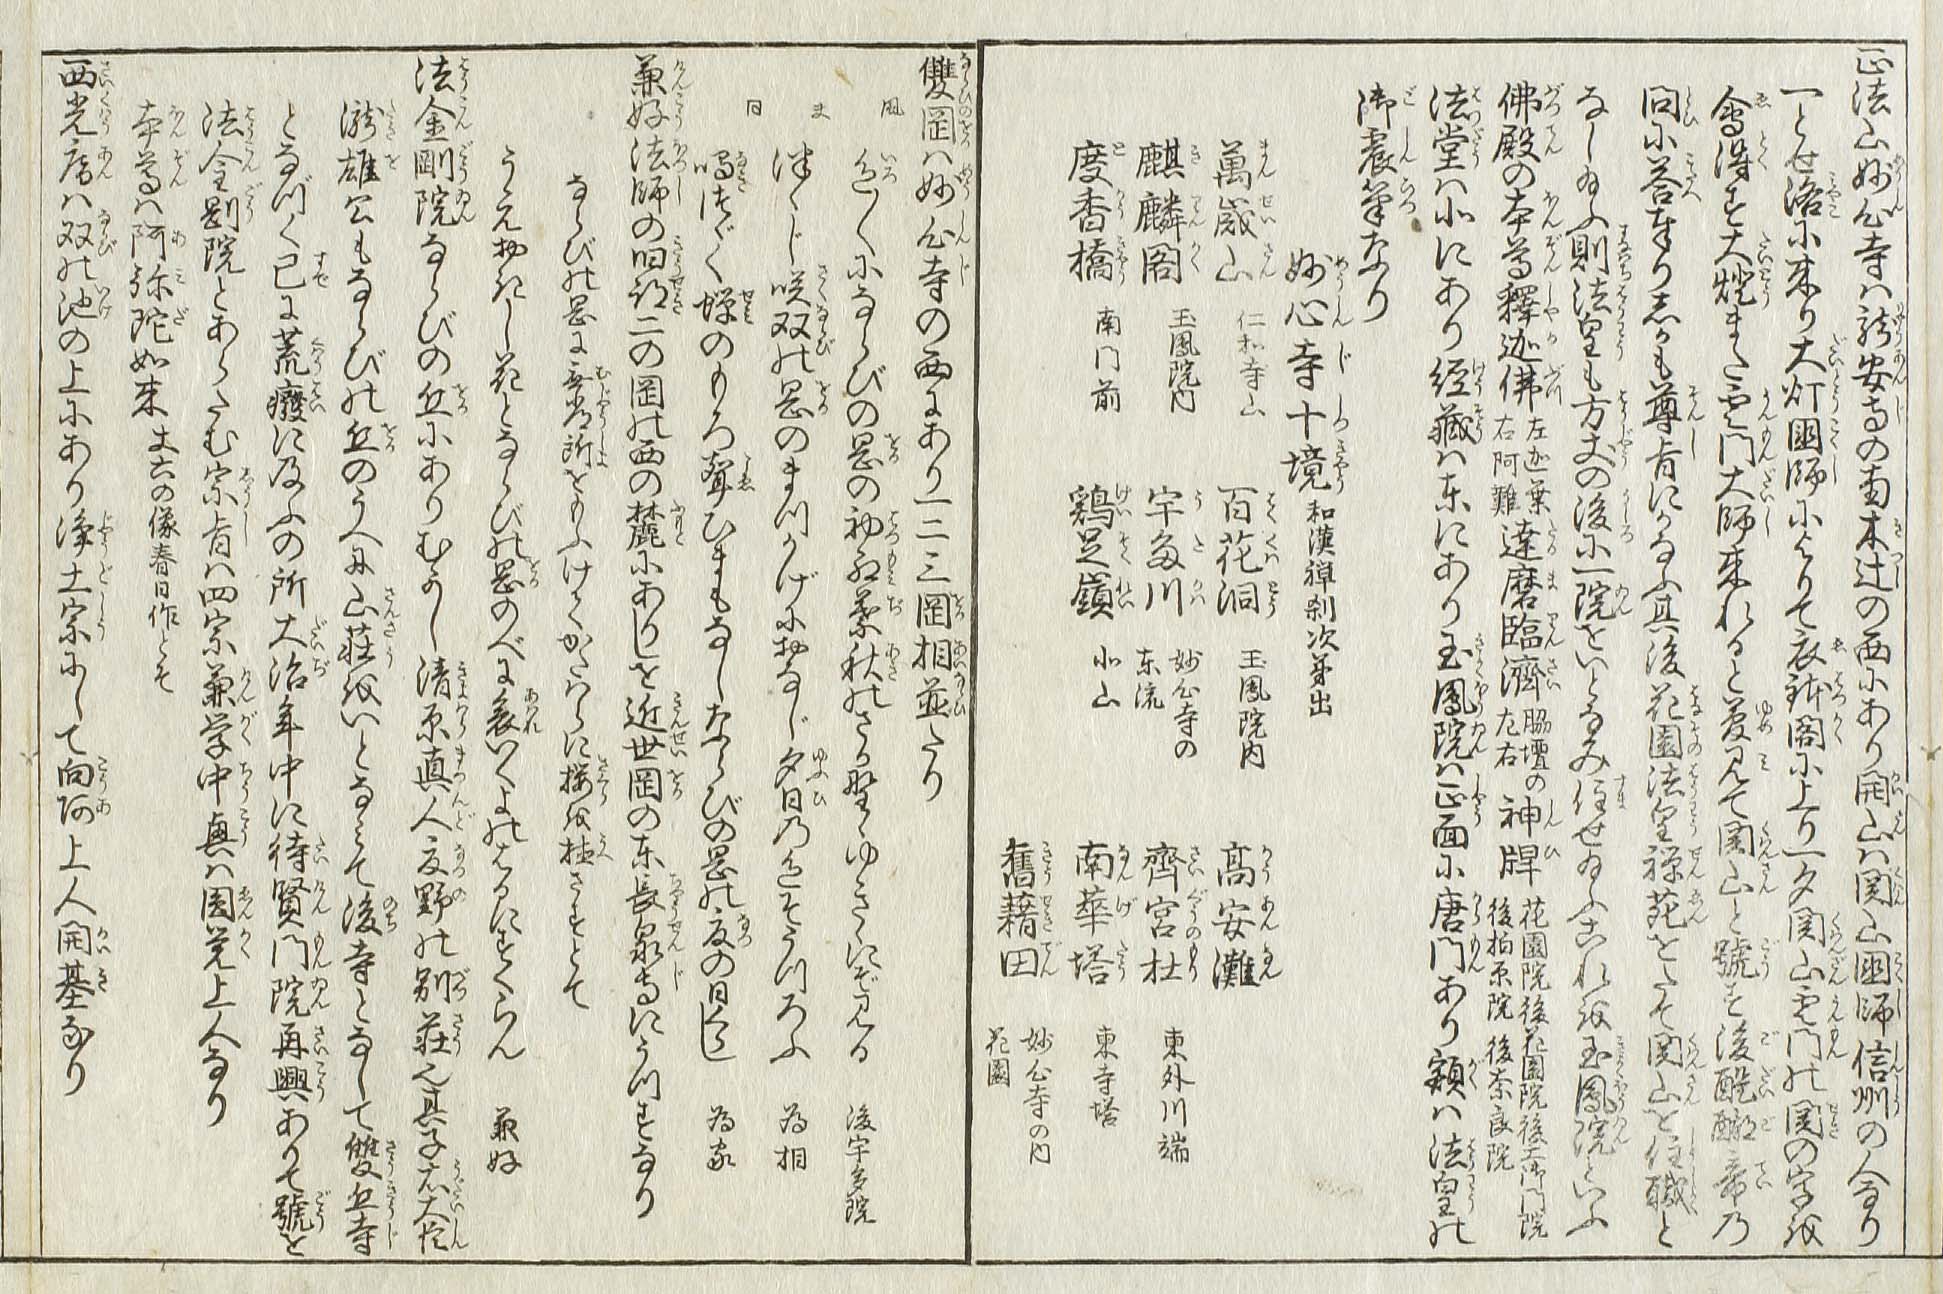 正法山妙心寺は龍安寺の南木辻の西にあり開山は関山国師信州の人なり
一とせ洛に来り大灯国師によりて衣鉢閣に上り一夕関山雲門の関の字を
会得す大灯また雲門大師来れると夢見て関山と號す後醍醐帝の
問に答奉りしかも尊旨にかなふ其後花園法皇禅苑をたて関山を住職と
なし給ふ則法皇も方丈の後に一院をいとなみ住せ給ふこれを玉鳳院といふ
佛殿の本尊釋迦佛 左迦葉 右阿難 達磨臨濟 脇壇の左右 神牌 花園院後花園院後土御門院 後柏原院 後奈良院
法堂は北にあり経蔵は東にあり玉鳳院は正面に唐門あり額は法皇の
御震筆なり
妙心寺十境 和漢禅刹次第出
萬歳山 仁和寺山 百花洞 玉鳳院内 高安灘 東外川端
麒麟閣 玉鳳院内 宇多川 妙心寺の東流 齊宮杜
度香橋 南門前 鶏足嶺 北山 南華塔 東寺塔
舊藉田 妙心寺の内花園
雙岡は妙心寺の西にあり一二三岡相並たり
風 色々にならびの岡の初紅葉秋のさが野のゆきゝにぞ見る 後宇多院
ま つゝじ咲双の岡のまつかげにおなじ夕日の色そうつろふ 為相
同 鳴つゞく蝉のもろ聲ひまもなしならびの岡の夏の日ぐらし 為家
兼好法師の旧跡二の岡の西の麓にありしを近世岡の東長泉寺にうつすなり
ならびの岡に無常所をまふけてかたはらに桜を植さすとて
うえおきし花とならびの岡のべに哀いくよの春にすぐらん 兼好
法金剛院ならびの丘にありむかし清原真人夏野の別荘也其子右大臣
瀧雄公もならびの丘のうへに山荘をいとなみて後寺となして雙丘寺
となづく已に荒癈に及ふの所大治年中に待賢門院再興ありて號を
法金剛院とあらたむ宗旨は四宗兼学中興は圓覚上人なり
本尊は阿弥陀如来 丈六の像春日作とそ
西光庵は双の池の上にあり浄土宗にして向阿上人開基なり